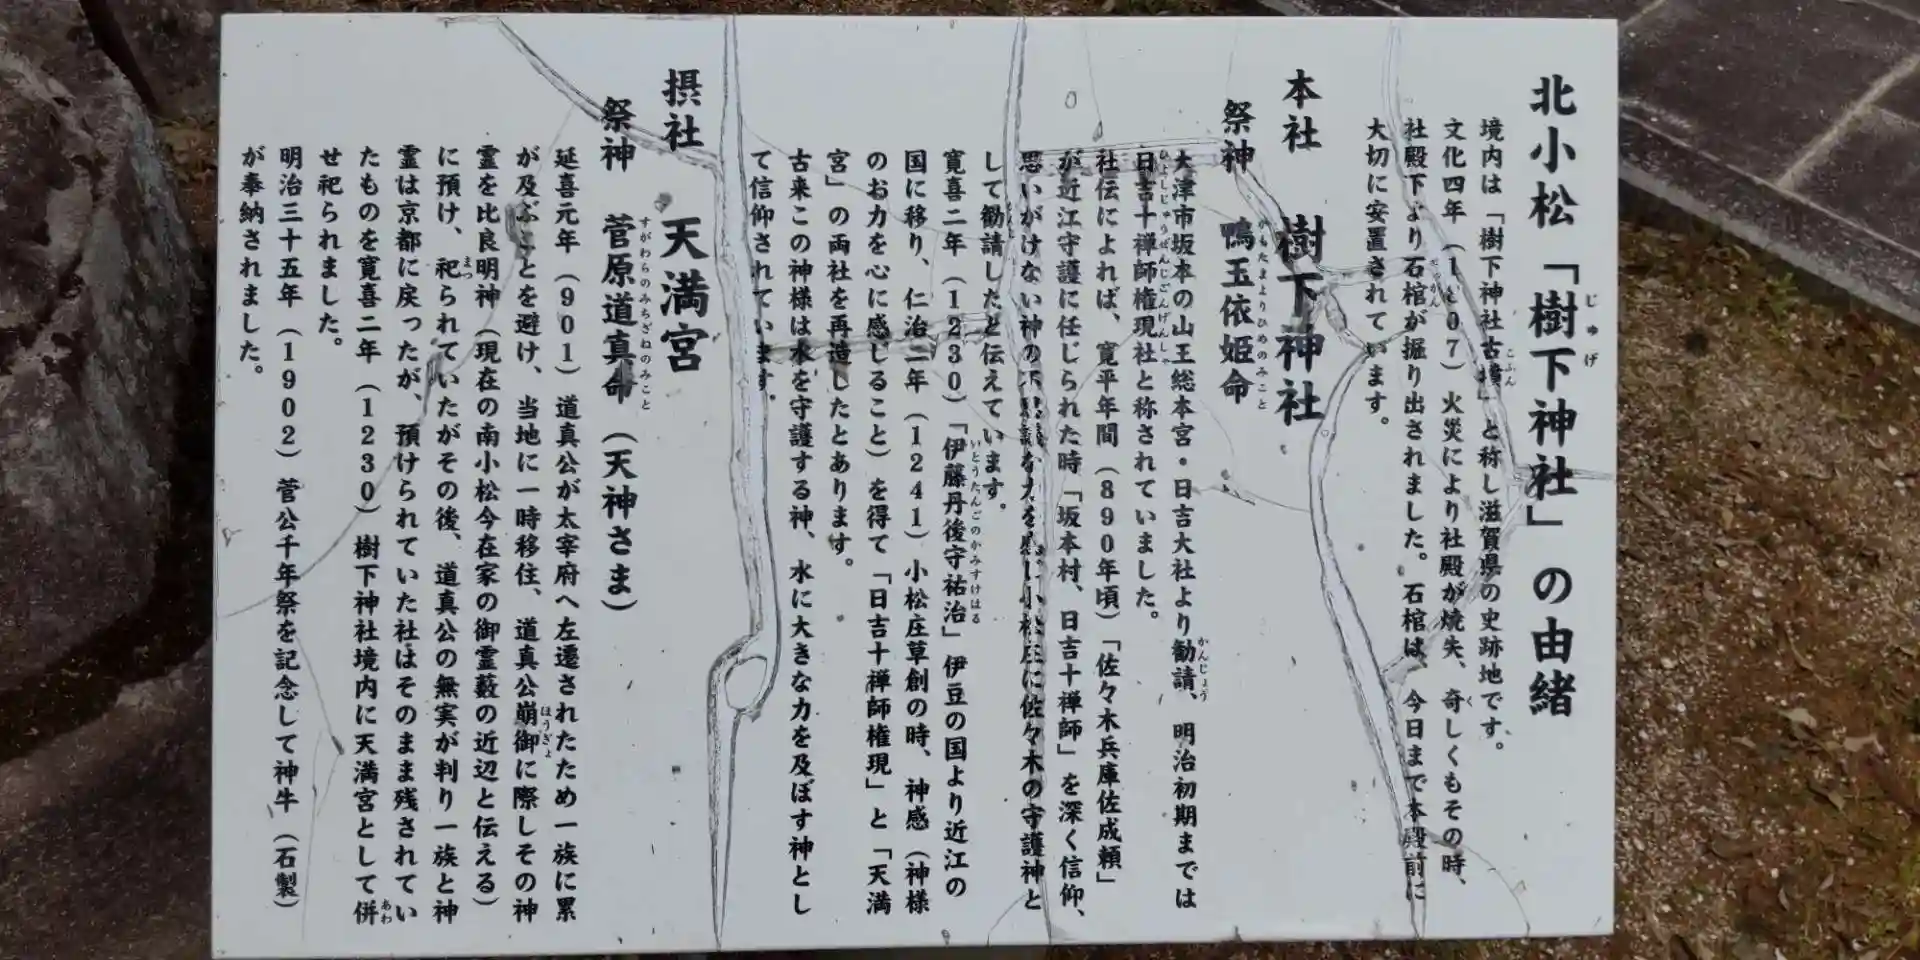 北小松「樹下神社」の由緒
境内は「樹下神社古墳」と称し滋賀県の史跡地です。
文化四年（1807）火災により社殿が焼失、奇しくもその時、
社殿下より石棺が掘り出されました。石棺は、今日まで本殿前に
大切に安置されています。
本社　樹下神社
祭神　鴨玉依姫命
大津市坂本の山王総本宮・日吉大社より勧請、明治初期までは
日吉十禅師権現社と称されていました。
社伝によれば、寛平年間（890年頃）「佐々木兵庫佐成頼」
が近江守護に任じられた時「坂本村、日吉十禅師」を深く信仰、
思いがけない神の不思議な力を感じ小松庄に佐々木の守護神と
して勧請したと伝えています。
寛喜二年（1230）「伊藤丹後守祐治」伊豆の国より近江の
国に移り、仁治二年（1241）小松庄草創の時、神感（神様
のお力を心に感じること）を得て「日吉十禅師権現」と「天満
宮」の両社を再造したとあります。
古来この神様は水を守護する神、水に大きな力を及ぼす神とし
て信仰されています。
摂社　天満宮
祭神　菅原道真命（天神さま）
延喜元年（901）道真公が太宰府へ左遷されたため一族に累
が及ぶことを避け、当地に一時移住、道真公崩御に際しその神
霊を比良明神（現在の南小松今在家の御霊藪の近辺と伝える）
に預け、祀られていたがその後、道真公の無実が判り一族と神
霊は京都に戻ったが、預けられていた社はそのまま残されてい
たものを寛喜二年（1230）樹下神社境内に天満宮として併
せ祀られました。
明治三十五年（1902）菅公千年祭を記念して神牛（石製）
が奉納されました。